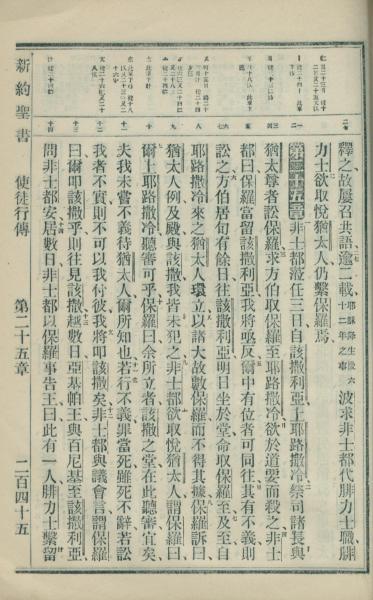 新約聖書 使徒行傳 第二十五章 二百四十五
釋之故屢召共語逾二載耶穌降生後六十二年之事波求非士都代腓力士職腓
力士欲取悅猶太人仍繫保羅焉
第二十五章非士都蒞任三日自該撒利亞上耶路撒冷祭司諸長與
猶太尊者訟保羅求方伯取保羅至耶路撒冷欲於道要而殺之非士
都曰保羅當留該撒利亞我將亟反爾中有位者可同往其有不義則
訟之方伯居旬有餘日往該撒利亞明日坐於堂命取保羅至及至自
耶路撒冷來之猶太人環立以諸大故數保羅而不得其據保羅訴曰
猶太人例及殿與該撒我皆未犯之非士都欲取悅猶太人謂保羅曰
爾上耶路撒冷聽審可乎保羅曰余所立者該撒之堂在此聽審宜矣
夫我未嘗不義待猶太人爾所知也若行不義罪當死雖死不辭若訟
我者不實則不可以我付彼我將叩該撒矣非士都與議會言謂保羅
曰爾叩該撒乎則往見該撒越數日亞基帕王與百尼基至該撒利亞
問非士都安居數日非士都以保羅事告王曰此有一人腓力士繫留